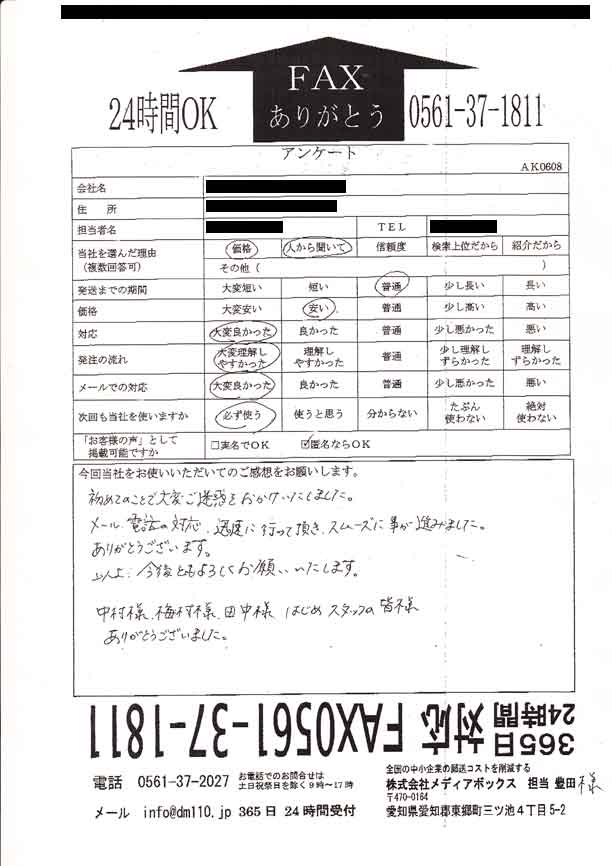 FAX
ありがとう
24時間OK
0561-37-1811
アンケート
AK0608
会社名
住 所
担当者名 TEL
当社を選んだ理由(複数回答可) 価格 人から聞いて 信頼度 検索上位だから 紹介だから
その他( )
発送までの期間 大変短い 短い 普通 少し長い 長い
価格 大変安い 安い 普通 少し高い 高い
対応 大変良かった 良かった 普通 少し悪かった 悪い
発注の流れ 大変理解しやすかった 理解しやすかった 普通 少し理解しずらかった 理解しずらかった
メールでの対応 大変良かった 良かった 普通 少し悪かった 悪い
次回も当社を使いますか 必ず使う 使うと思う 分からない たぶん使わない 絶対使わない
「お客様の声」として掲載可能ですか □実名でOK ☑匿名ならOK
今回当社をお使いいただいてのご感想をお願いします。
初めてのことで大変ご迷惑をおかけいたしました。
メール、電話の対応、迅速に行って頂き、スムーズに事が進みました。
ありがとうございます。
以上、今後ともよろしくお願いいたします。
中村様、梅村様、田中様 はじめ スタッフの皆様
ありがとうございました。
365日24時間対応 FAX0561-37-1811
電話 0561-37-2027 お電話でのお問合せは
土日祝祭日を除く9時~17時
メール info@dm110.jp 365日24時間受付
全国の中小企業の郵送コストを削減する
株式会社メディアボックス 担当 豊田 様
〒470-0164
愛知県愛知郡東郷町三ツ池4丁目5-2